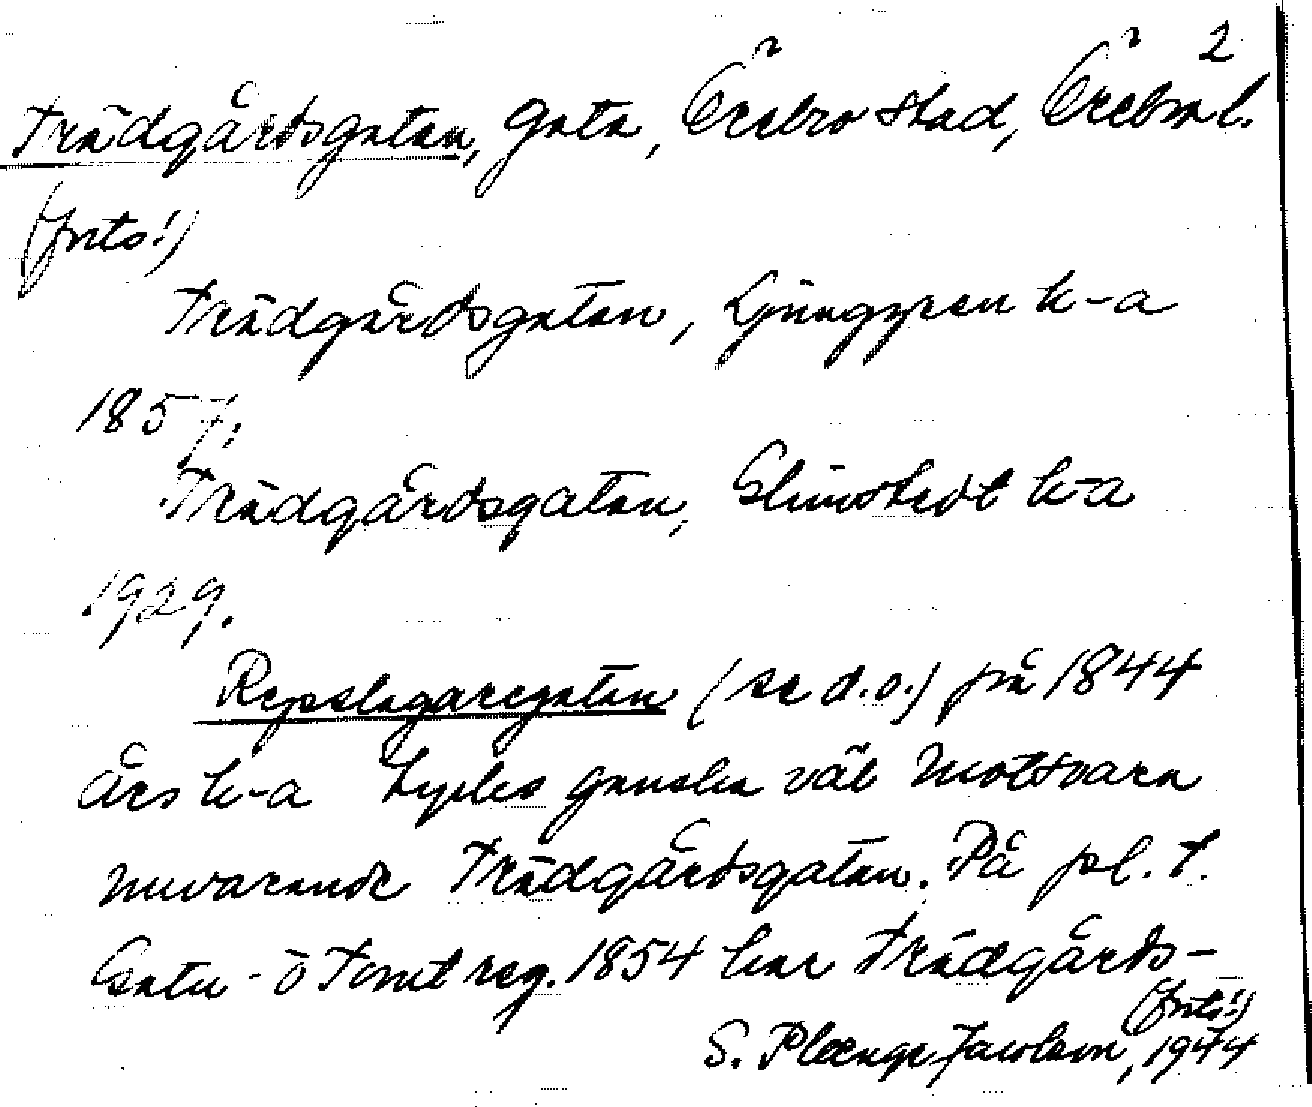 2
Trädgårdsgatan, gata, Örebro stad, Örebro l.
(forts!)
Trädgårdsgatan, Ljunggren k-a
1857.
Trädgårdsgatan, Elmstedt k-a
1929.
Repslagaregatan (se d.o.) på 1844
års k-a tycks ganska väl motsvara
nuvarande Trädgårdsgatan. På pl. t.
Gatu- o Tomt reg. 1854 har Trädgårds-
(forts!)
S. Plænge Jacobson, 1944